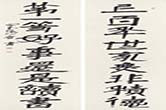 上百年世家無非積德
第一等好事還是讀書